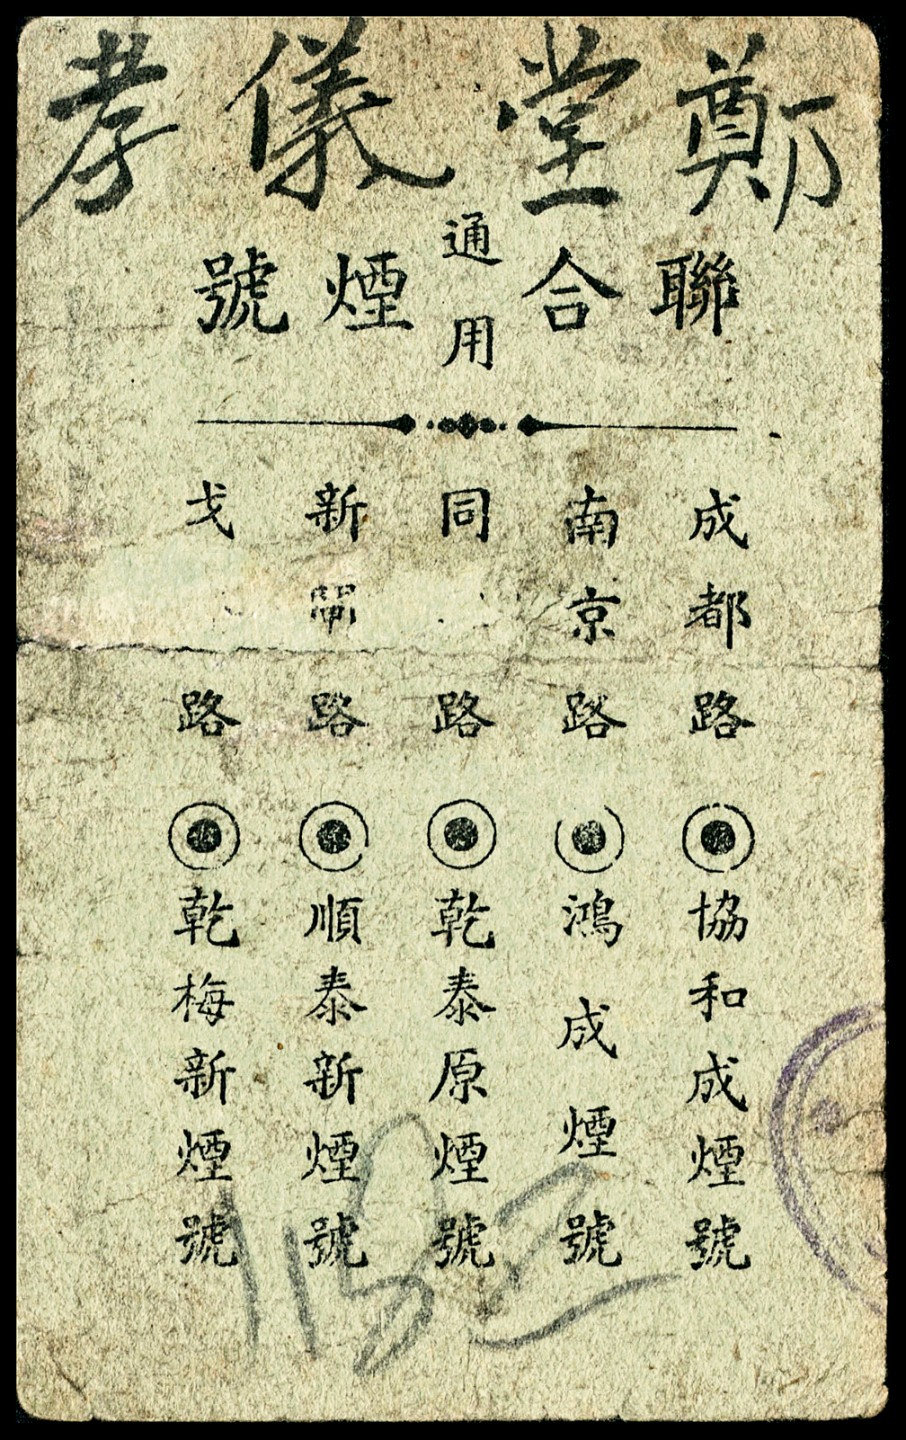 鄭堂儀孝
聯合通用煙號
成都路◉協和成煙號
南京路◉鴻成煙號
同路◉乾泰原煙號
新閘路◉順泰新煙號
戈路◉乾梅新煙號